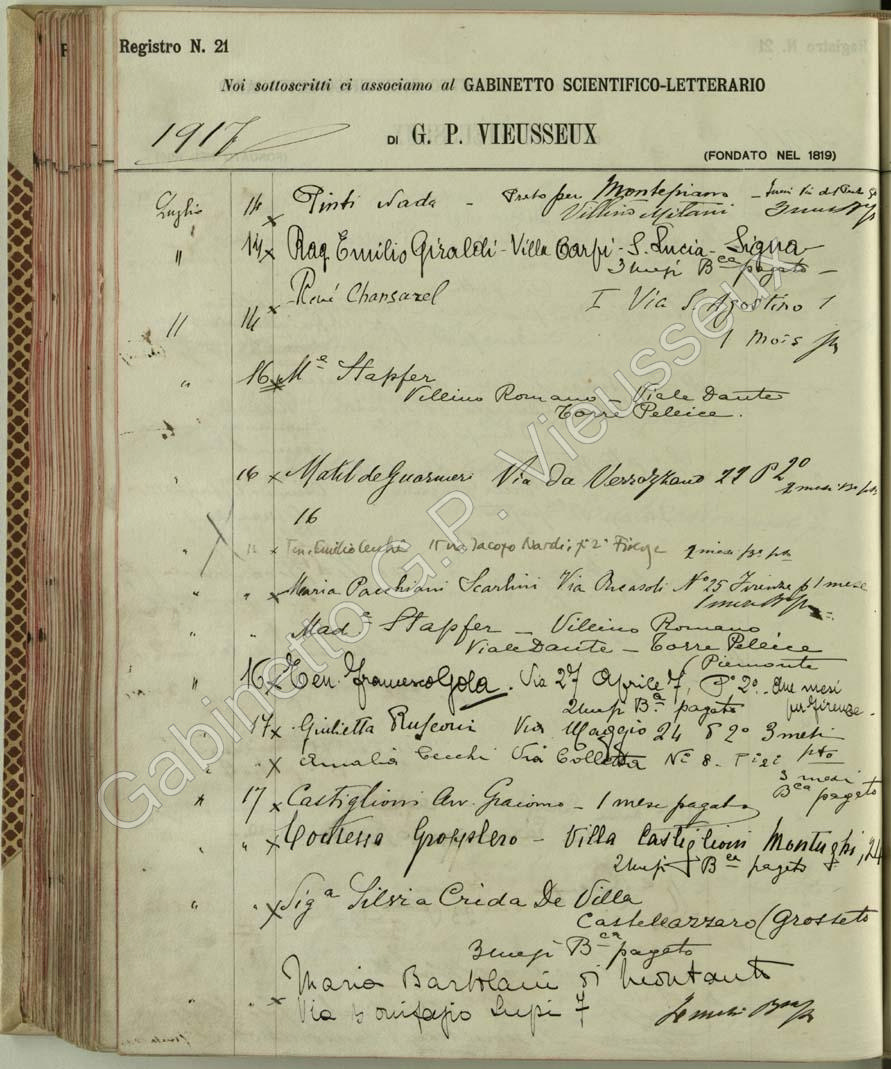 Registro N. 21
Noi sottoscritti ci associamo al GABINETTO SCIENTIFICO-LETTERARIO
1917
DI G. P. VIEUSSEUX
(FONDATO NEL 1819)
Luglio 14 x Pinti Nada - Prato per Montepiano
Villino Milani - 3 mesi
" 14 x Rag. Emilio Giraldi - Villa Carpi - S. Lucia - Signa
3 mesi Bca pagato -
René Chansarel I Via S. Agostino 1
11 14 x 1 Mois
" 16 x Me Stapfer
Villino Romano - Viale Dante
Torre Pellice.
" 16 x Matilde Guarnieri Via Da Verrazzano 22 P 2o
2 mesi
16
" x Ten. Emilio Cecchi 15 via Jacopo Nardi, po 2o Firenze 2 mesi
" " x Maria Pacchiani Scarlini Via Ricasoli No 25 Firenze p 1 mese
1 mese
" " Made Stapfer - Villino Romano
Viale Dante - Torre Pellice
(Piemonte
" 16 x Ten. Francesco Gola. Via 27 Aprile 7, Po 2o. due mesi
2 mesi Ba pagato per Firenze.
" 17 x Giulietta Rusconi Via Maggio 24 P 2o 3 mesi
pto
" " x Amalia Cecchi Via Colletta No 8.
3 mesi
Bca pagato
" 17 x Castiglioni Avv. Giacomo - 1 mese pagato
" " x Contessa Gropplero - Villa Castiglioni Montughi, 24
2 mesi Bca pagato
" " x Siga Silvia Crida De Villa
Castellazzaro (Grosseto
3 mesi Bca pagato
" " x Maria Bartolani di Montauto
Via Bonifazio Lupi 7
mesi
Gabinetto G.P. Vieusseux